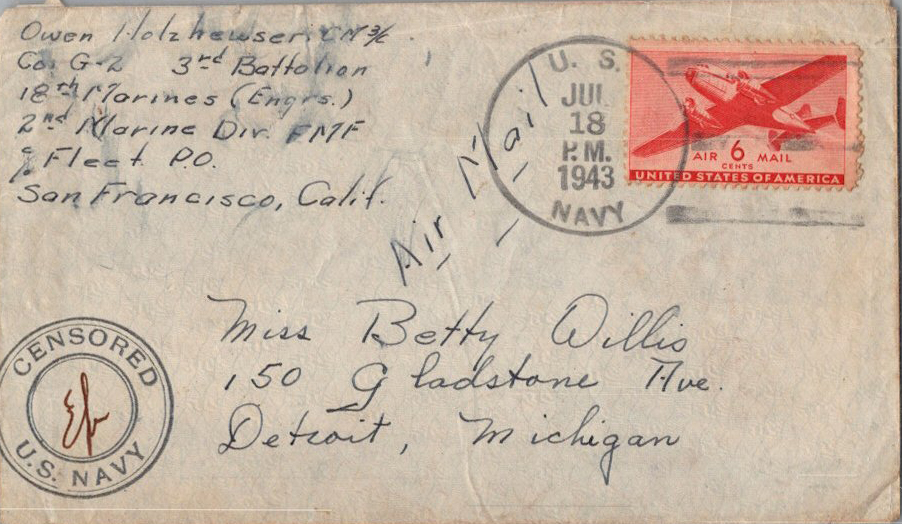 Owen Holzhewser CM 3/c
Co. G-2 3rd Battalion
18th Marines (Engrs.)
2nd Marine Div. FMF
℅ Fleet P.O.
San Francisco, Calif.
Air Mail
U. S.
JUL
18
P.M.
1943
NAVY
AIR 6 MAIL
CENTS
UNITED STATES OF AMERICA
Miss Betty Willis
150 Gladstone Ave.
Detroit, Michigan
CENSORED
U.S. NAVY